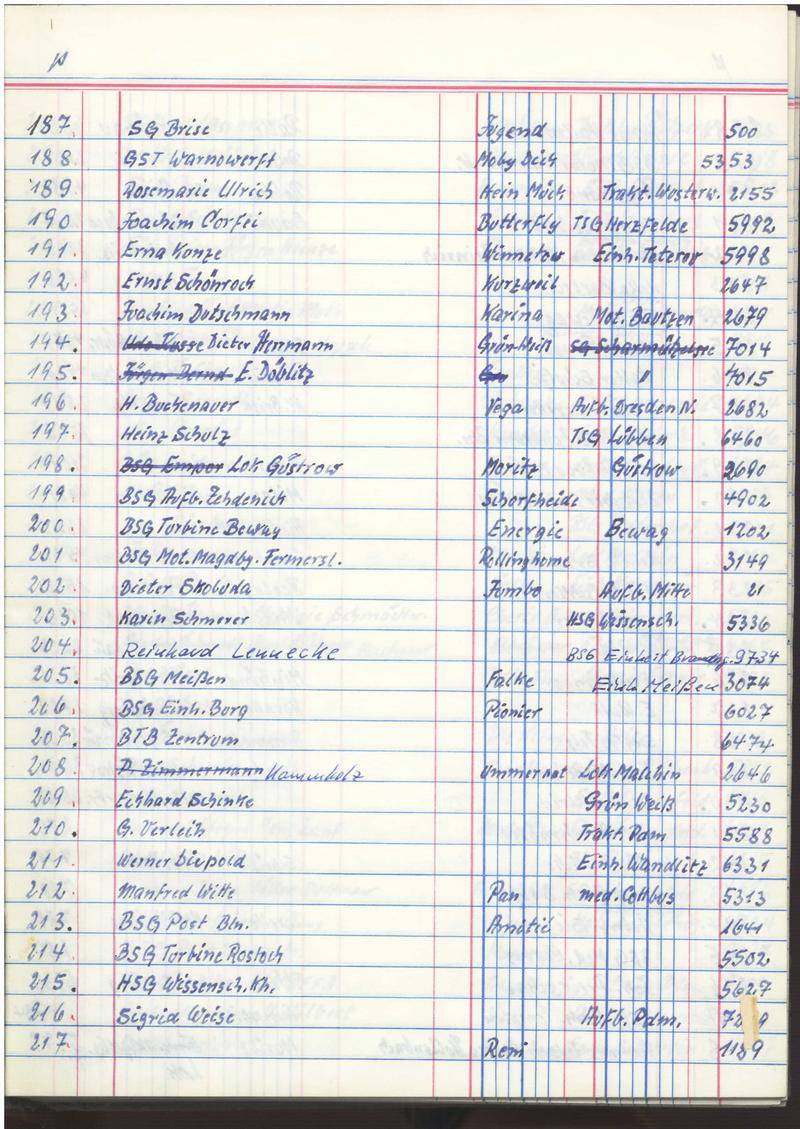 187. SG Brise Jugend 500
188. GST Warnowwerft Moby Dick 5353
189. Rosemarie Ulrich Hein Mück Trakt. Wusterw. 2155
190. Joachim Corfei Butterfly TSG Herzfelde 5992
191. Erna Kunze Winnetow Einh. Teterow 5998
192. Ernst Schönrock Kurzweil 2647
193. Joachim Dutschmann Karina Mot. Bautzen 2679
194. Udo Kusse Dieter Henmann Grün Weiß SG Scharmützelsee 7014
195. Jürgen Bernd E. Döblitz " 7015
196. H. Buchenauer Vega Aufb. Dresden N. 2682
197. Heinz Schulz TSG Lübben 6460
198. BSG Empor Lok Güstrow Moritz Güstrow 2690
199. BSG Aufb. Zehdenick Schorfheide 4902
200. BSG Turbine Bewag Energie Bewag 1202
201. BSG Mot. Magdbg. Fermersl. Rollinghome 3149
202. Dieter Skoluda Jumbo Aufb. Mitte 21
203. Karin Schmerer HSG Wissensch. 5336
204. Reinhard Lennecke BSG Einheit Brandbg. 9734
205. BSG Meißen Falke Einh Meißen 3074
206. BSG Einh. Burg Pionier 6027
207. BTB Zentrum 6474
208. P. Zimmermann Hammholz Ummernat Lok Malchin 2646
209. Eckhard Schinke Grün Weiß 5230
210. G. Verleih Trakt. Pdm 5588
211 Werner Diepold Einh. Wandlitz 6331
212. Manfred Witte Pan med. Cottbus 5313
213. BSG Post Bln. Amitié 1641
214 BSG Turbine Rostock 5502
215. HSG Wissensch. Kh. 5627
216. Sigrid Weise Aufb. Pdm.
217. Reni 1189